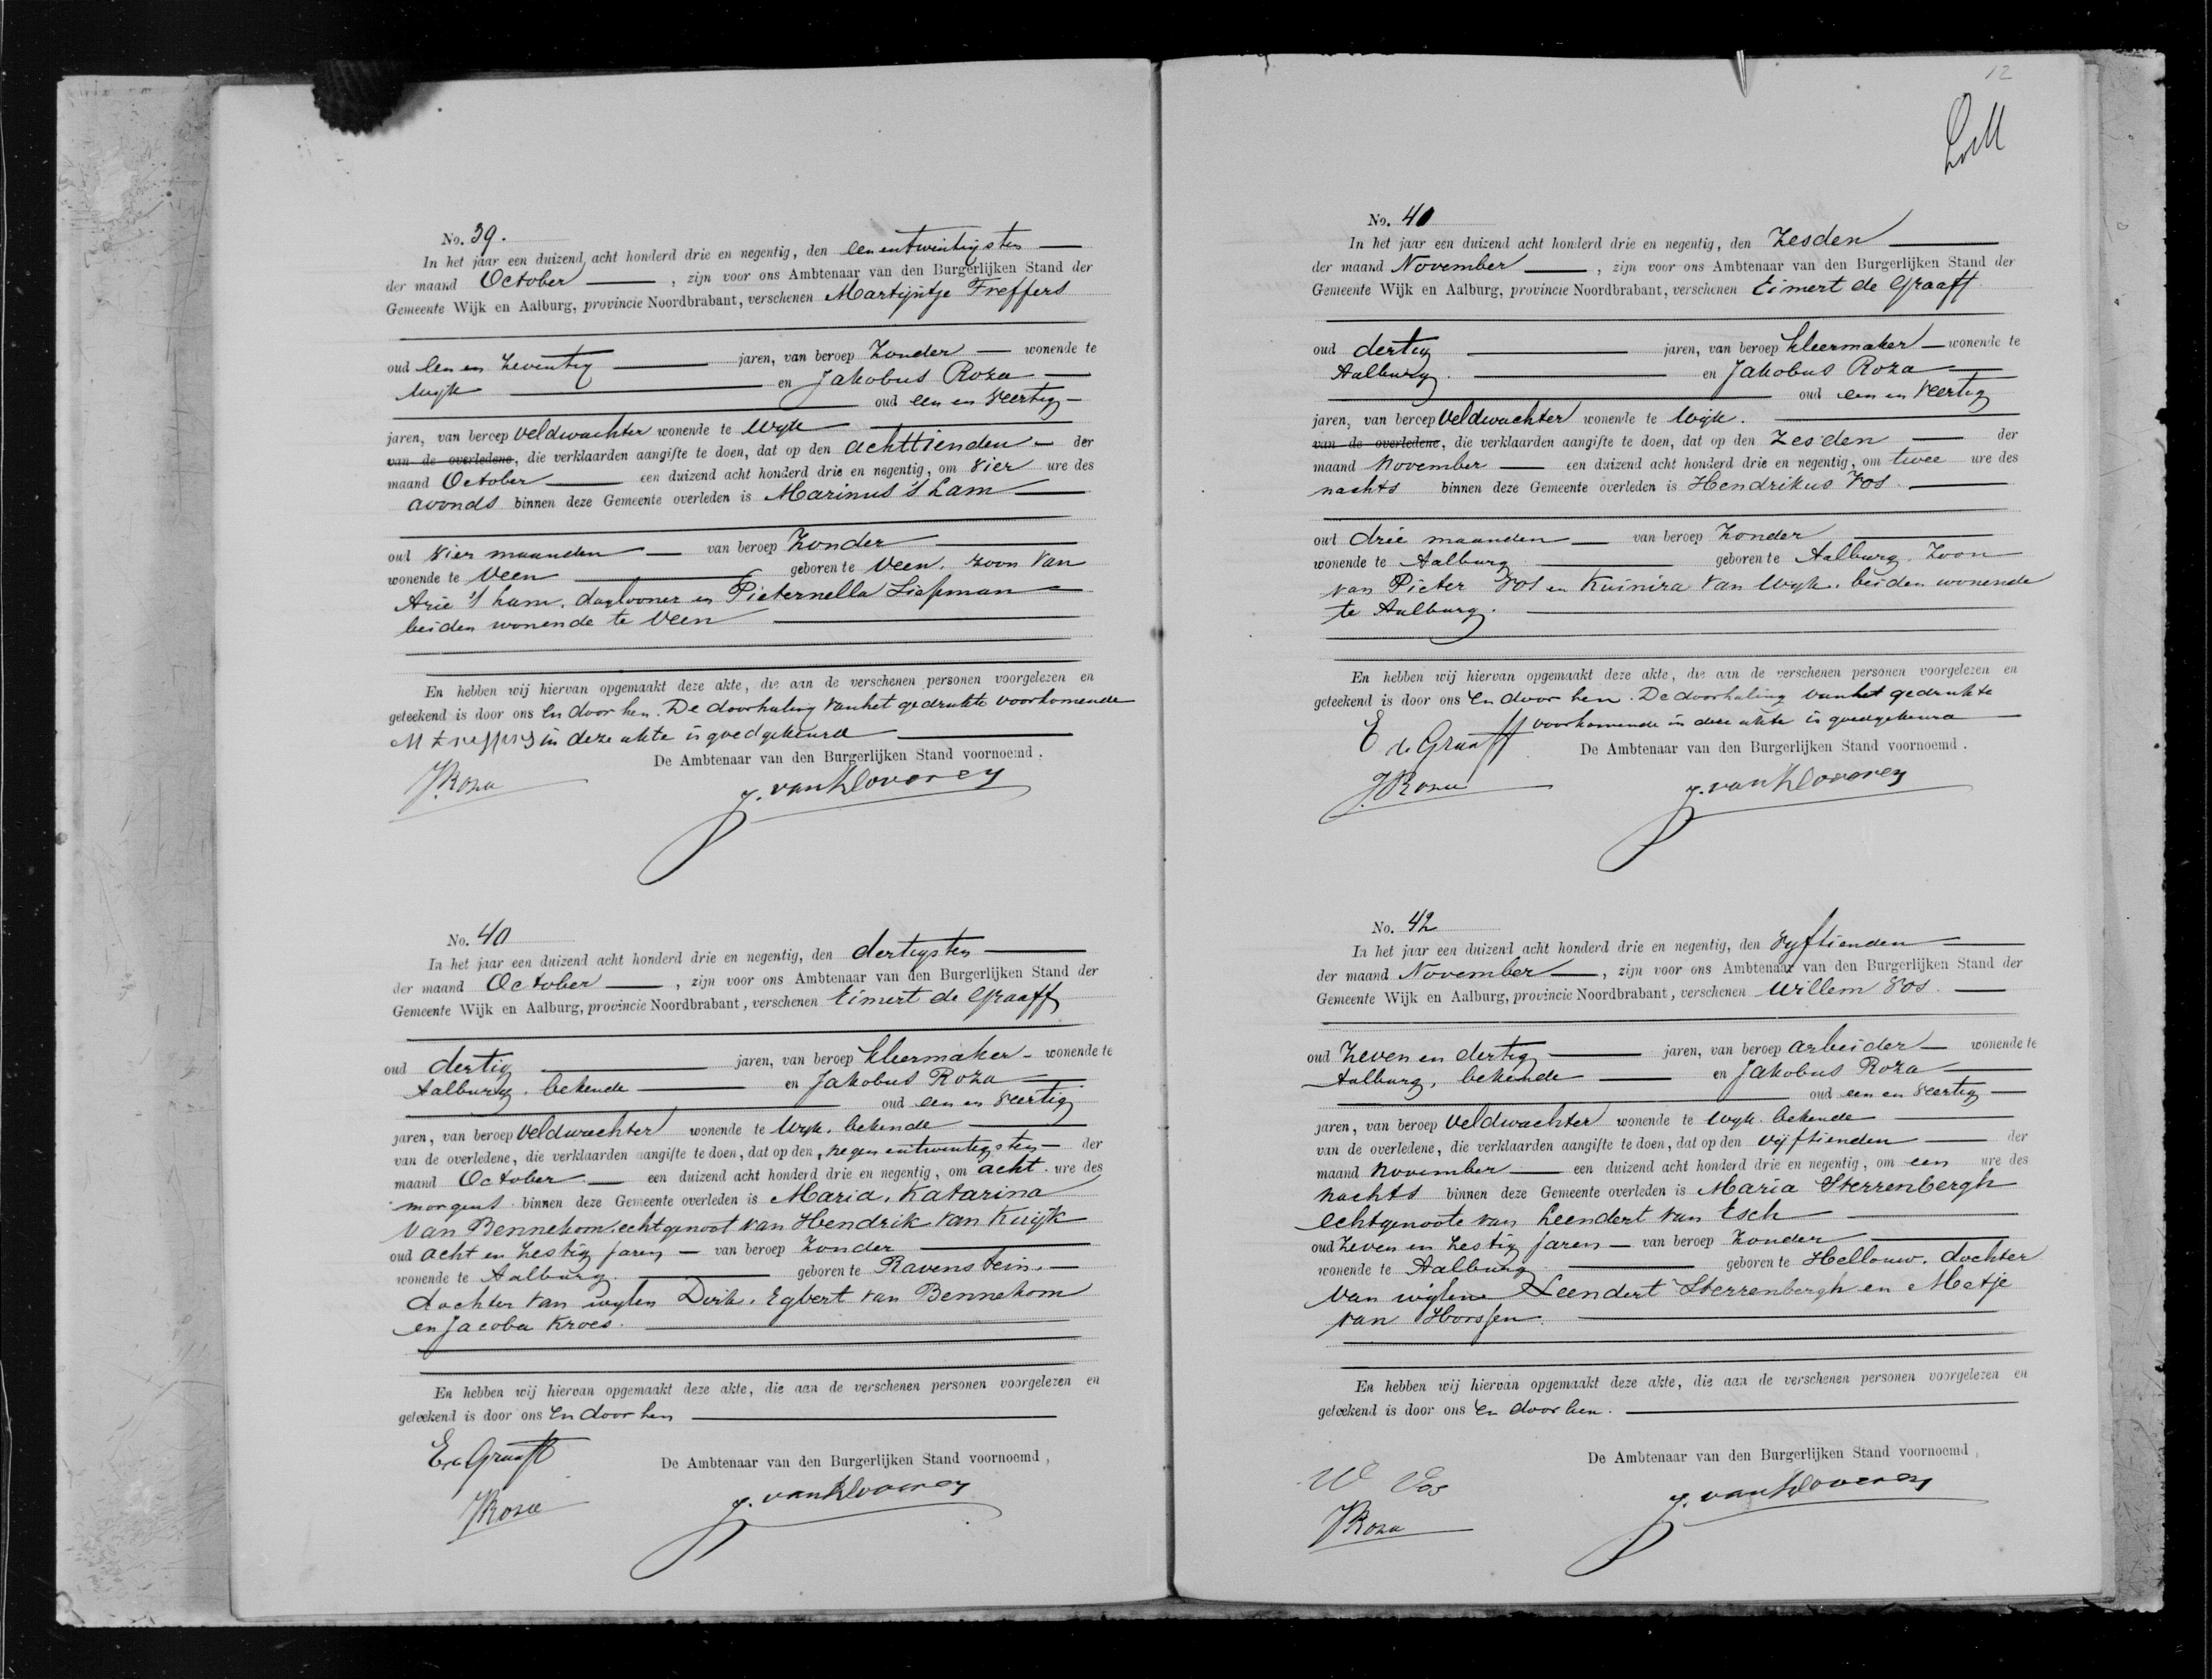 No. 39.
In het jaar een duizend acht honderd drie en negentig, den eenentwintigsten
der maand October, zijn voor ons Ambtenaar van den Burgerlijken Stand der
Gemeente Wijk en Aalburg, provincie Noordbrabant, verschenen Martijntje Treffers
oud een en zeventig jaren, van beroep Zonder wonende te
Wijk en Jakobus Roza
oud een en veertig
jaren, van beroep Veldwachter wonende te Wijk
van de overledene, die verklaarden aangifte te doen, dat op den achttienden der
maand October een duizend acht honderd drie en negentig, om vier ure des
avonds binnen deze Gemeente overleden is Marinus 's Lam
oud vier maanden van beroep Zonder
wonende te Veen geboren te Veen. zoon van
Arie 's Lam, daglooner en Pieternella
beiden wonende te Veen
En hebben wij hiervan opgemaakt deze akte, die aan de verschenen personen voorgelezen en
geteekend is door ons en door hen. De doorhaling van het gedrukte voorkomende
M treffers in deze akte is goedgekeurd
De Ambtenaar van den Burgerlijken Stand voornoemd,
J. Roza
No. 40
In het jaar een duizend acht honderd drie en negentig, den dertigsten
der maand October, zijn voor ons Ambtenaar van den Burgerlijken Stand der
Gemeente Wijk en Aalburg, provincie Noordbrabant, verschenen Eimert de Graaff
oud dertig jaren, van beroep kleermaker wonende te
Aalburg. bekende en Jakobus Roza
oud een en veertig
jaren, van beroep Veldwachter wonende te Wijk. bekende
van de overledene, die verklaarden aangifte te doen, dat op den negenentwintigsten der
maand October een duizend acht honderd drie en negentig, om acht ure des
morgens binnen deze Gemeente overleden is Maria, Katarina
van Bennekom, echtgenoot van Hendrik van Kuijk
oud acht en zestig jaren van beroep Zonder
wonende te Aalburg. geboren te Ravenstein.
dochter van wijlen Derk, Egbert van Bennekom
en Jacoba Kroes.
En hebben wij hiervan opgemaakt deze akte, die aan de verschenen personen voorgelezen en
geteekend is door ons en door hen
E de Graaff
De Ambtenaar van den Burgerlijken Stand voornoemd,
J Roza
12
No. 41
In het jaar een duizend acht honderd drie en negentig, den Zesden
der maand November, zijn voor ons Ambtenaar van den Burgerlijken Stand der
Gemeente Wijk en Aalburg, provincie Noordbrabant, verschenen Eimert de Graaff
oud dertig jaren, van beroep kleermaker wonende te
Aalburg. en Jakobus Roza
oud een en veertig
jaren, van beroep Veldwachter wonende te Wijk.
van de overledene, die verklaarden aangifte te doen, dat op den Zesden der
maand November een duizend acht honderd drie en negentig, om twee ure des
nachts binnen deze Gemeente overleden is Hendrikus Vos
oud drie maanden van beroep Zonder
wonende te Aalburg geboren te Aalburg. Zoon
van Pieter Vos en Kuinira van Wijk. beiden wonende
te Aalburg.
En hebben wij hiervan opgemaakt deze akte, die aan de verschenen personen voorgelezen en
geteekend is door ons en door hen. De doorhaling van het gedrukte
voorkomende in deze akte is goedgekeurd
E de Graaff
De Ambtenaar van den Burgerlijken Stand voornoemd.
J. Roza
No. 42
In het jaar een duizend acht honderd drie en negentig, den Vyftienden
der maand November, zijn voor ons Ambtenaar van den Burgerlijken Stand der
Gemeente Wijk en Aalburg, provincie Noordbrabant, verschenen Willem Vos.
oud Zeven en dertig jaren, van beroep arbeider wonende te
Aalburg, bekende en Jakobus Roza
oud een en veertig
jaren, van beroep Veldwachter wonende te Wijk. bekende
van de overledene, die verklaarden aangifte te doen, dat op den vijftienden der
maand November een duizend acht honderd drie en negentig, om een ure des
nachts binnen deze Gemeente overleden is Maria Sterrenbergh
echtgenoote van Leendert van Esch
oud Zeven en Zestig jaren van beroep Zonder
wonende te Aalburg geboren te Hellouw. dochter
van wijlen Leendert Sterrenbergh en Metje
van Horssen.
En hebben wij hiervan opgemaakt deze akte, die aan de verschenen personen voorgelezen en
geteekend is door ons en door hen.
De Ambtenaar van den Burgerlijken Stand voornoemd,
W Vos
J Roza